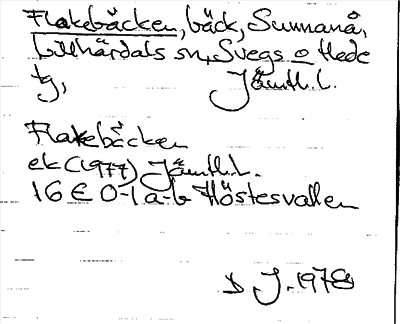 Flakebäcken, bäck, Sunnanå,
Lillhärdals sn, Svegs o Hede
tg, Jämtl.l.
Flakebäcken
ek (1977) Jämtl.l.
16 E 0-1 a-b Höstesvallen
D J. 1978